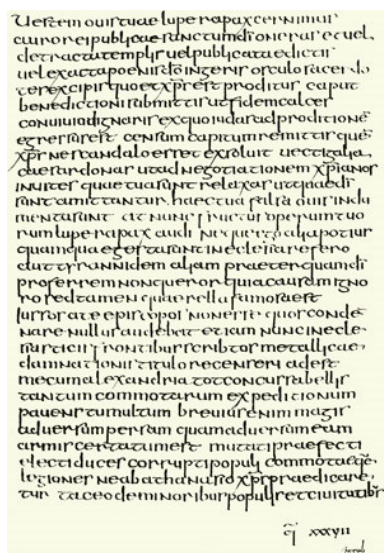 Uestem ouis tuae lupe rapax cernimus
auro rei publicae sanctum dī oneras et uel
detracta templis uel publicata edictis
uel exacta poenis dō ingeris osculo sacerdo
tes excipis quo et xp̄s est proditus caput
benedictioni submittis ut fidem calces
conuiuio dignaris ex quo iudas ad proditionē
egressus est censum capitum remittis quē
xp̄s ne scandalo esset exsoluit uectigalia
caesar donas ut ad negotiationem xp̄ianos
inuites quae tua sunt relaxas ut quae dī
sunt amittantur haec tua falsa ouis indu
menta sunt at nunc fructus operum tuo
rum lupe rapax audi nequero alia potius
quam quae gesta sunt in eclesia refero
aut tyrannidem aliam praeter quam dī
proferrem non queror quia causam igno
ro sed tamen querella famosa est
iussos a te episcopos non esse quos condē
nare nullus audebat etiam nunc in ecle
siasticis frontibus scribtos metallicae
damnationis titulo recenseri adest
mecum alexandria tot concussa bellis
tantum commotarum expeditionum
pauens tumultum breuius enim magis
aduersum persam quam aduersum eam
armis certatum est mutati praefecti
electi duces corrupti populi commotae
legiones ne ab athanasio xp̄s praedicare
tur taceo de minoribus populis et ciuitatibs
q̄ xxxuii